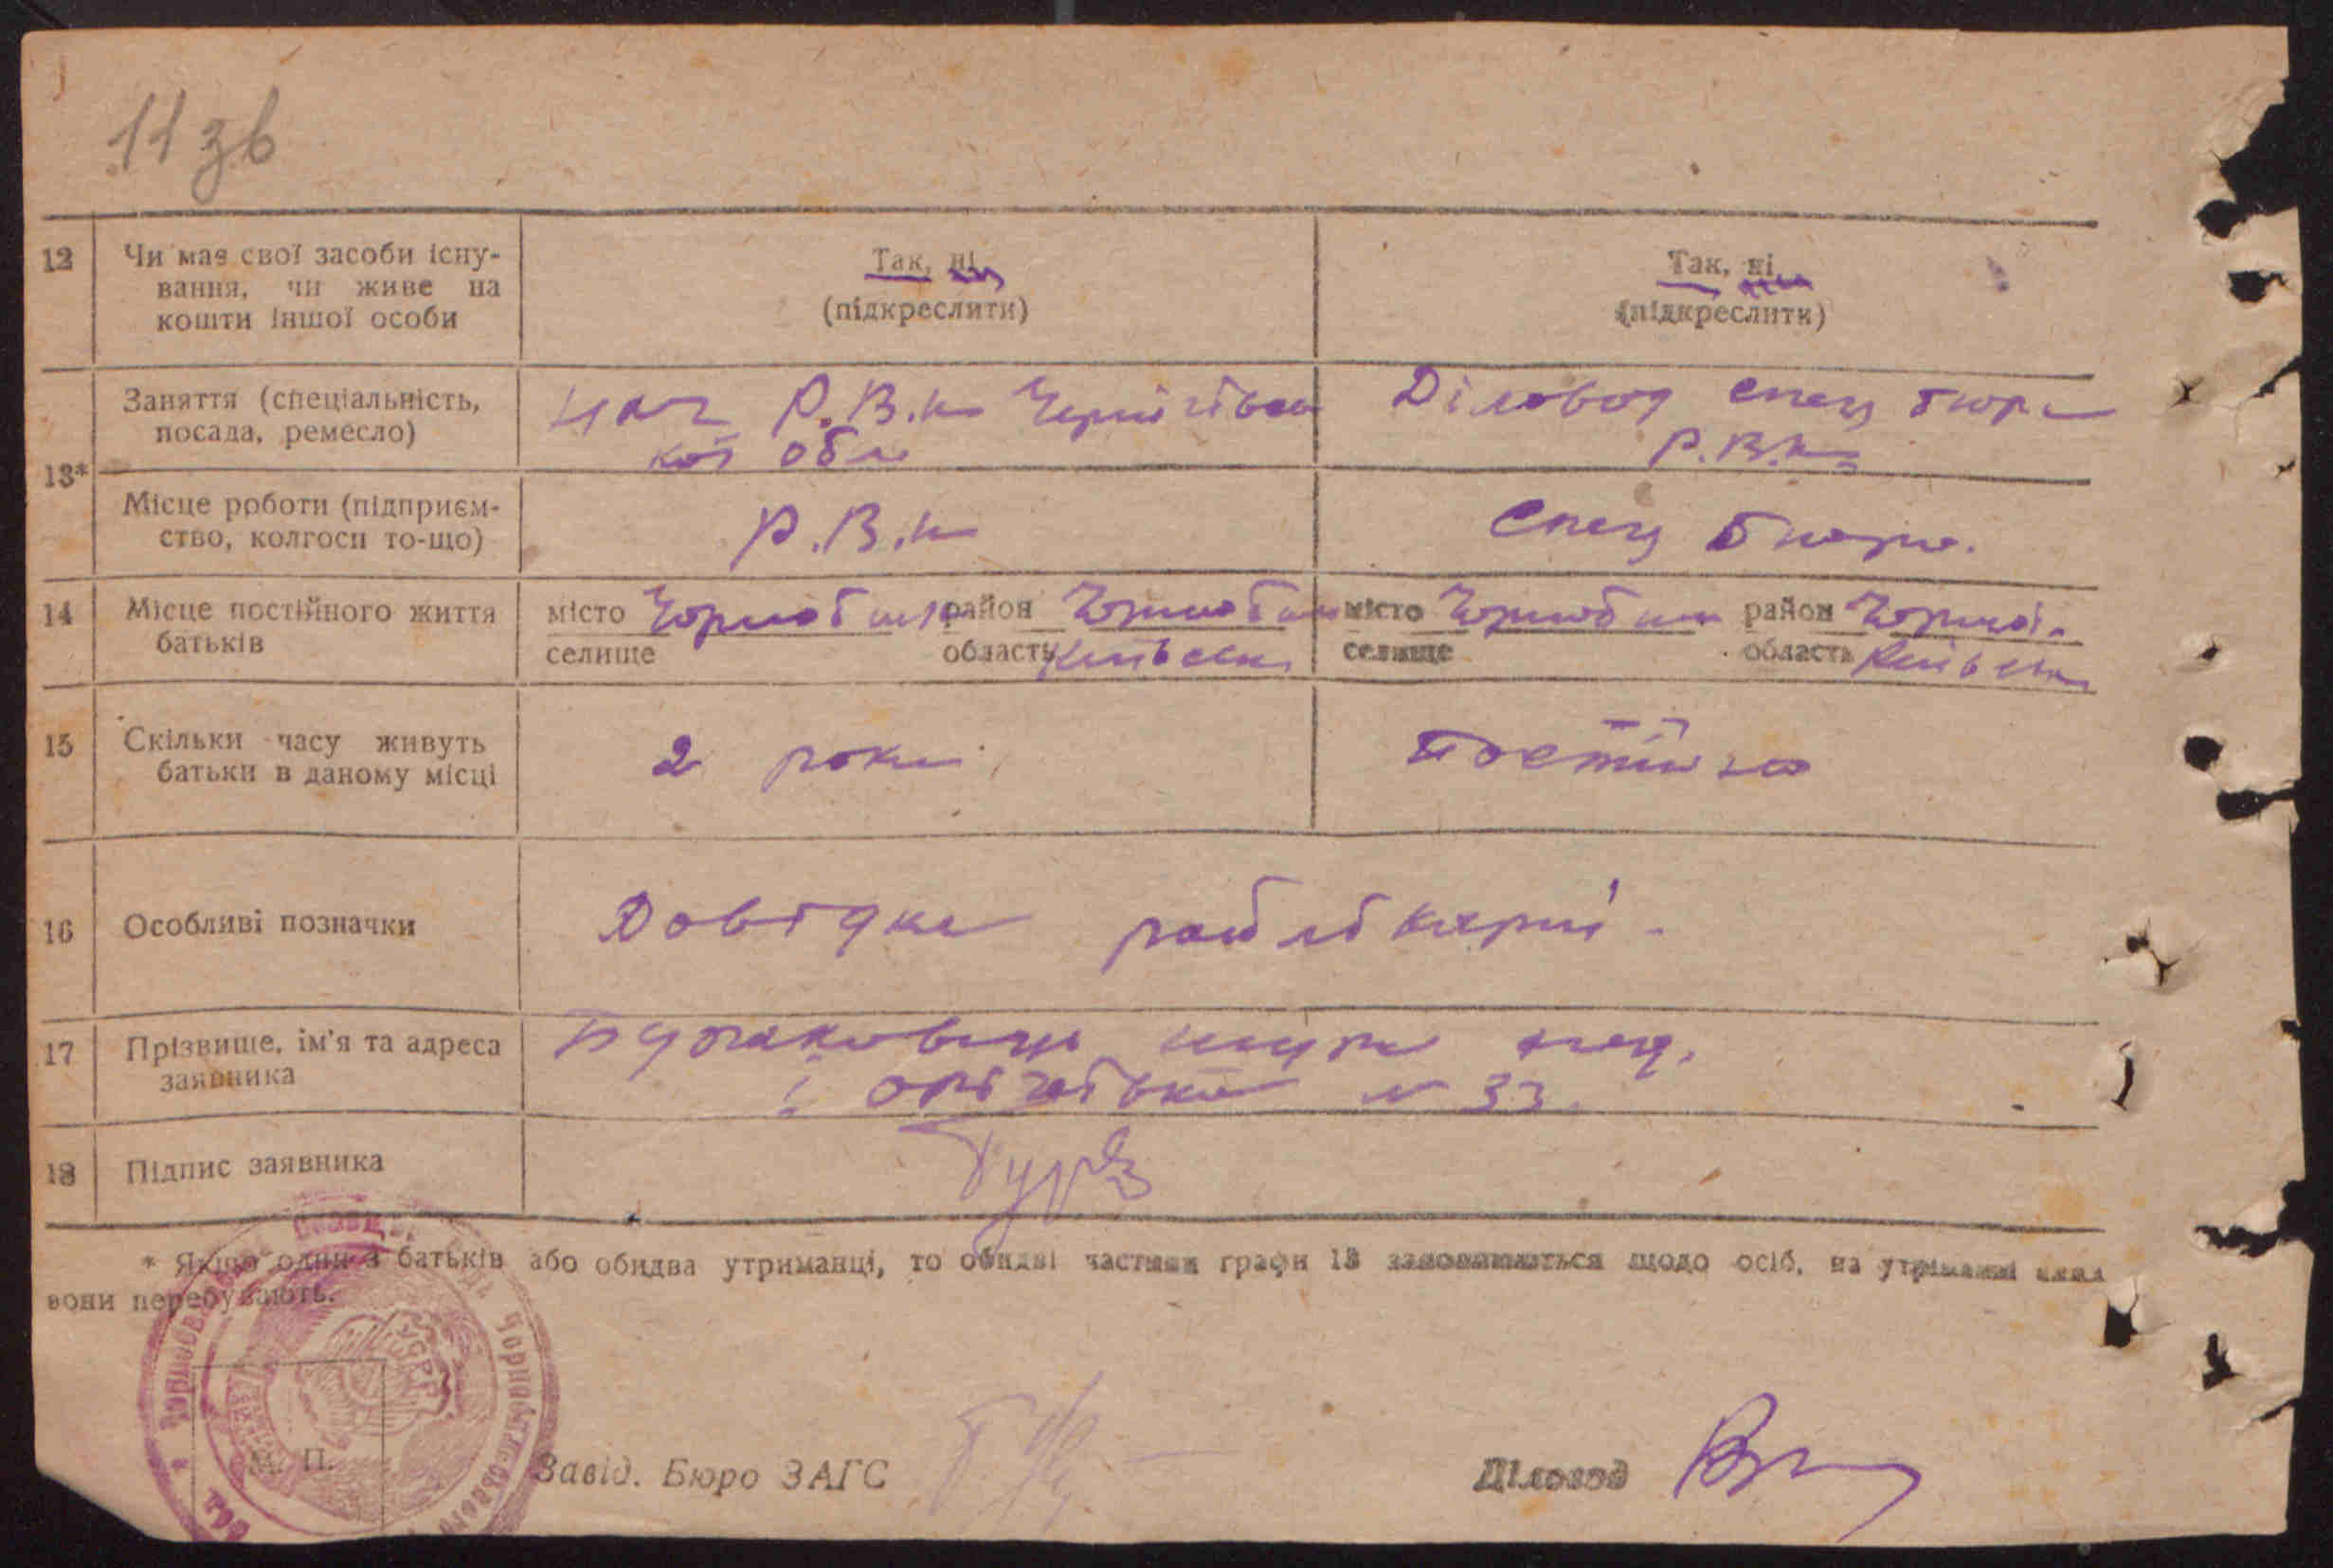 11 зв
12 Чи має свої засоби існу-
вання, чи живе на
кошти іншої особи
Так, ні
(підкреслити)
Так, ні
(підкреслити)
13*
Заняття (спеціальність,
посада, ремесло)
нач Р.В.К Чернігівсь
кої обл
Діловод спец бюро
Р.В.К.
Місце роботи (підприєм-
ство, колгосп то-що)
Р.В.К
Спец бюро.
14 Місце постійного життя
батьків
місто Чорнобиль район Чорнобил
селище область Київськ
місто Чорнобил район Чорноб.
селище область Київськ
15 Скільки часу живуть
батьки в даному місці
2 роки
постійно
16 Особливі позначки
Довідка
17 Прізвище, ім'я та адреса
заявника
№ 33.
18 Підпис заявника
* Якщо один з батьків або обидва утриманці, то обидві частини графи 13 заповнюються щодо осіб, на утриманні яких
вони перебувають.
УСРР
М. П.
Завід. Бюро ЗАГС
Діловод